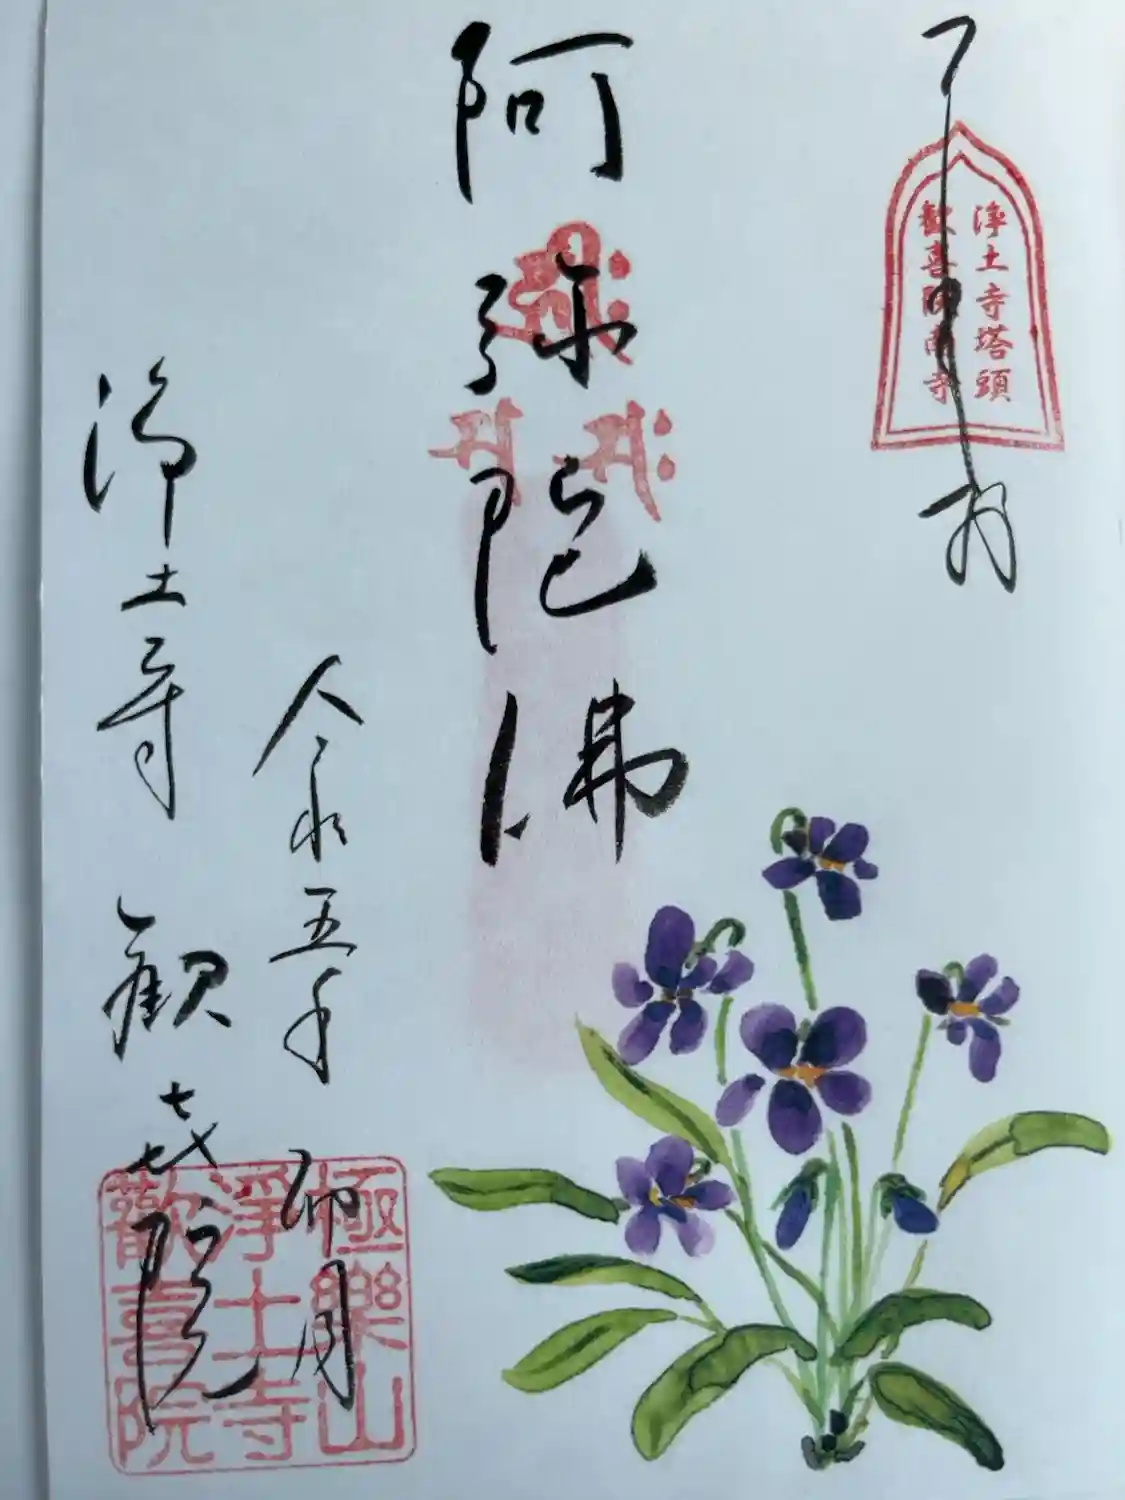 浄土寺塔頭
歓喜院南寺
阿弥陀佛
令和五年
卯月
浄土寺 歓喜院
極樂山
淨土寺
歡喜院